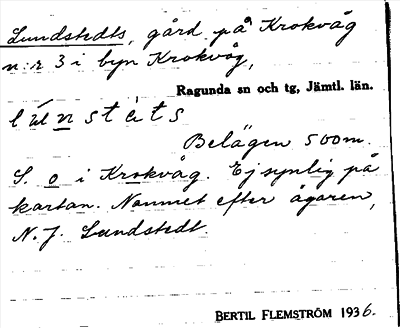 Lundstedts, gård på Krokvåg
n:r 3 i byn Krokvåg,
Ragunda sn och tg, Jämtl. län.
Belägen 500m.
S. o i Krokvåg. Ej synlig på
kartan. Namnet efter ägaren,
N. J. Lundstedt.
BERTIL FLEMSTRÖM 1936.